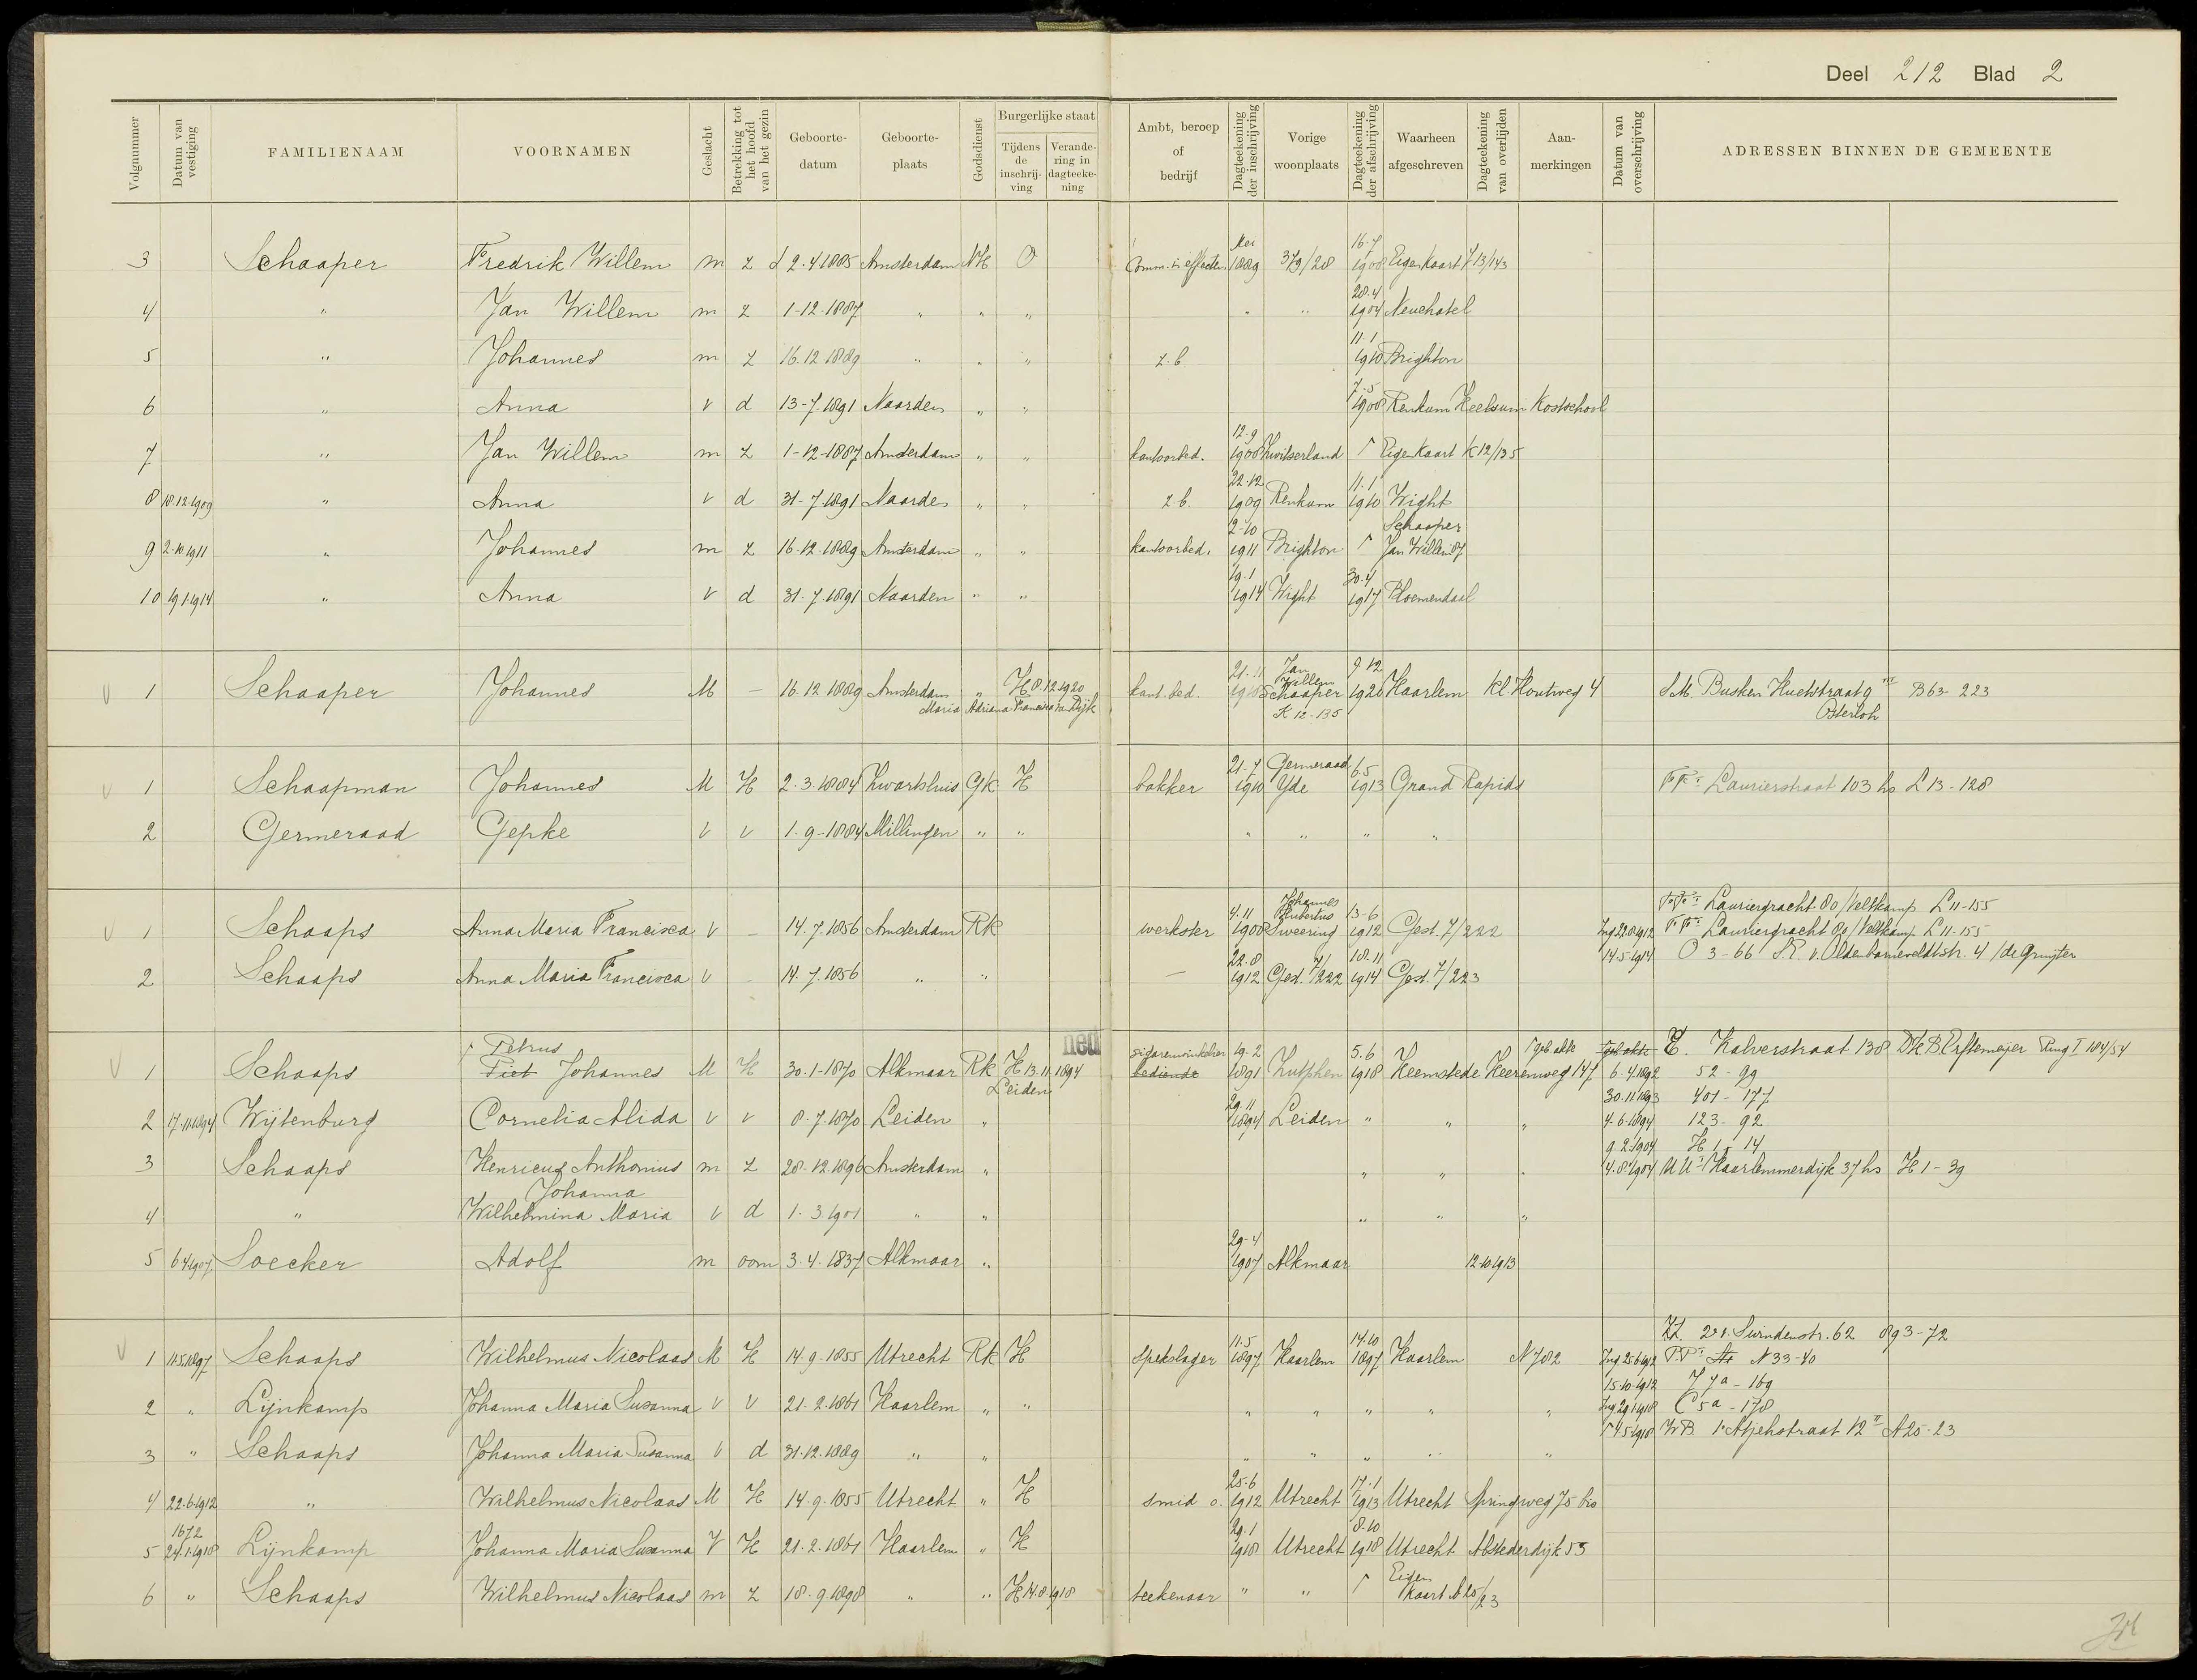 Deel 212 Blad 2
Volgnummer | Datum van vestiging | FAMILIENAAM | VOORNAMEN | Geslacht | Betrekking tot het hoofd van het gezin | Geboorte-datum | Geboorte-plaats | Godsdienst | Burgerlijke staat | Tijdens de inschrij-ving | Verande-ring in dagteeke-ning | Ambt, beroep of bedrijf | Dagteekening der inschrijving | Vorige woonplaats | Dagteekening der afschrijving | Waarheen afgeschreven | Dagteekening van overlijden | Aan-merkingen | Datum van overschrijving | ADRESSEN BINNEN DE GEMEENTE
3 Schaaper Fredrik Willem m z 2.4.1885 Amsterdam NH O Comm. in effecten Mei 1889 379/28 16.7 1908 Eigen kaart 13/143
4 " Jan Willem m z 1-12-1887 " " " " " 28.4 1904 Neuchatel
5 " Johannes m z 16.12.1889 " " " z.b 11.1 1910 Brighton
6 " Anna v d 13-7-1891 Naarden " " 7.5 1908 Renkum Heelsum Kostschool
7 " Jan Willem m z 1-12-1887 Amsterdam " " kantoorbed. 12.9 1908 Zwitserland Eigen kaart K12/135
8 18.12.1909 " Anna v d 31-7-1891 Naarden " " z.b. 22.12 1909 Renkum 11.1 1910 Wight
9 2.10.1911 " Johannes m z 16-12-1889 Amsterdam " " kantoorbed. 2-10 1911 Brighton Schaaper Jan Willem 87
10 19.1.1914 " Anna v d 31.7.1891 Naarden " " 19.1 1914 Wight 30.4 1917 Bloemendaal
1 Schaaper Johannes M - 16.12.1889 Amsterdam " H 8.12.1920 Maria Adriana Francisca van Dijk kant. bed. 21.11 Jan Willem Schaaper K 12-135 9 12 1920 Haarlem Kl. Houtweg 4 Busken Huetstraat 9 III B63-223
Osterloh
1 Schaapman Johannes M H 2.3.1884 Zwartsluis GK H bakker 21.7 1910 Germeraad Yde 6.5 1913 Grand Rapids FF: Laurierstraat 103 hs L 13-128
2 Germeraad Gepke V v 1-9-1884 Millingen " " " " " "
1 Schaaps Anna Maria Francisca V - 14.7.1856 Amsterdam RK werkster 4.11 1908 Johannes Hubertus Sweering 13-6 1912 Gest. 7/222 FF: Lauriergracht 80/Veltkamp L 11-155
Ing 22.8.1912 FF: Lauriergracht 80/Veltkamp L 11-155
2 Schaaps Anna Maria Francisca V - 14.7.1856 " " - 22.8 1912 Gest. 7/222 18.11 1914 Gest. 7/223 14.5.1914 O 3-66 v. Oldenbarneveldtstr. 4 /de Gruijter
neu
1 Schaaps Petrus Piet Johannes M H 30.1-1870 Alkmaar RK H 13.11.1894 Leiden sigarenwinkelier bediende 19.2 1891 Zutphen 5.6 1918 Heemstede Heerenweg 147 geb. akte Kalverstraat 138 Erftemeijer Ring I 104/54
6.4.1892 52-99
30.11.1893 401-177
2 17.11.1894 Wijtenburg Cornelia Alida V v 8.7.1870 Leiden " 29.11 1894 Leiden " " " 4.6.1894 123-92
9.2.1904 H 1-14
3 Schaaps Henricus Anthonius m z 28.12.1896 Amsterdam " " " " 4.8.1904 UU: Haarlemmerdijk 37 hs H 1-39
4 " Johanna Wilhelmina Maria V d 1.3.1901 " " " " "
5 6.4.1907 Soecker Adolf m oom 3.4.1837 Alkmaar " 29-4 1907 Alkmaar 12.10.1913
1 11.5.1897 Schaaps Wilhelmus Nicolaas M H 14.9.1855 Utrecht RK H spekslager 11.5 1897 Haarlem 14.10 1897 Haarlem N 782 ZZ. 2e v. Swindenstr. 62 893-72
Ing 25.6.1912 P.P: N 33-40
15.10.1912 J 7a-169
2 " Lijnkamp Johanna Maria Susanna V v 21.2.1861 Haarlem " " " " " " " Ing 29.1.1918 C 5a-178
14.5.1918 WB 1e Atjehstraat 12 II A 25-23
3 " Schaaps Johanna Maria Susanna V d 31.12.1889 " " " " " " "
4 22.6.1912 " Wilhelmus Nicolaas M H 14.9.1855 Utrecht " H smid o. 25.6 1912 Utrecht 17.1 1913 Utrecht Springweg 75 bis
1672
5 24.1.1918 Lijnkamp Johanna Maria Susanna V H 21.2.1861 Haarlem " H 29.1 1918 Utrecht 8.10 1918 Utrecht Abstederdijk 55
6 " Schaaps Wilhelmus Nicolaas m z 18.9.1898 " " H 14.8.1918 teekenaar " " Eigen kaart A 25/23